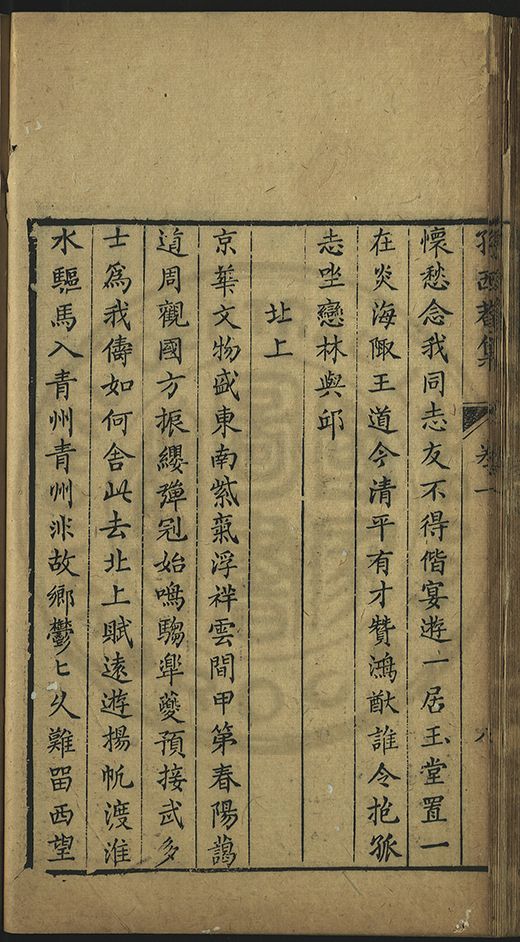 孫西菴集 卷一 八
懷愁念我同志友不得偕宴遊一居玉堂置一
在炎海陬王道今清平有才贊鴻猷誰令抱孤
志坐戀林與邱
北上
京華文物盛東南紫氣浮祥雲間甲第春陽藹
道周觀國方振纓彈冠始鳴騶臯夔預接武多
士爲我儔如何舍此去北上賦遠遊揚帆渡淮
水驅馬入青州青州非故鄉鬱匕久難留西望